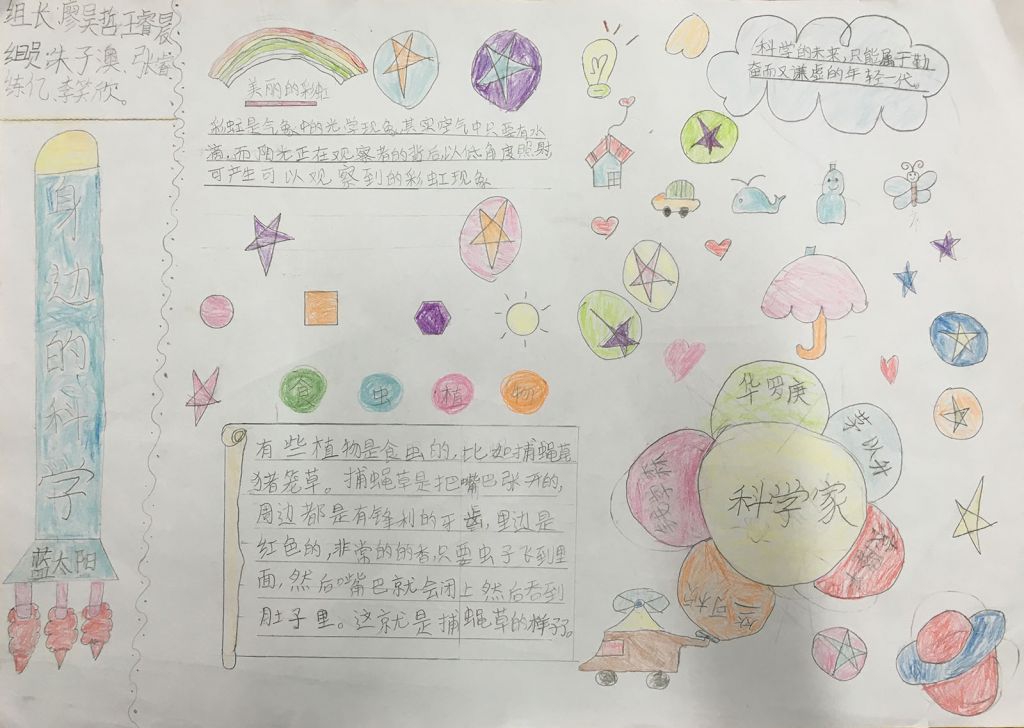 组长:廖吴哲、王睿晨
组员:朱子澳、张睿
练亿、李芙欣。
身边的科学
蓝太阳
美丽的彩虹
彩虹是气象中的光学现象,其实空气中只要有水
滴,而阳光正在观察者的背后以低角度照射,
可产生可以观察到的彩虹现象
科学的未来,只能属于勤
奋而又谦虚的年轻一代。
食 虫 植 物
有些植物是食虫的,比如捕蝇草
猪笼草。捕蝇草是把嘴巴张开的,
周边都是有锋利的牙齿,里边是
红色的,非常的的香,只要虫子飞到里
面,然后嘴巴就会闭上然后吞到
肚子里。这就是捕蝇草的样子。
华罗庚
科学家